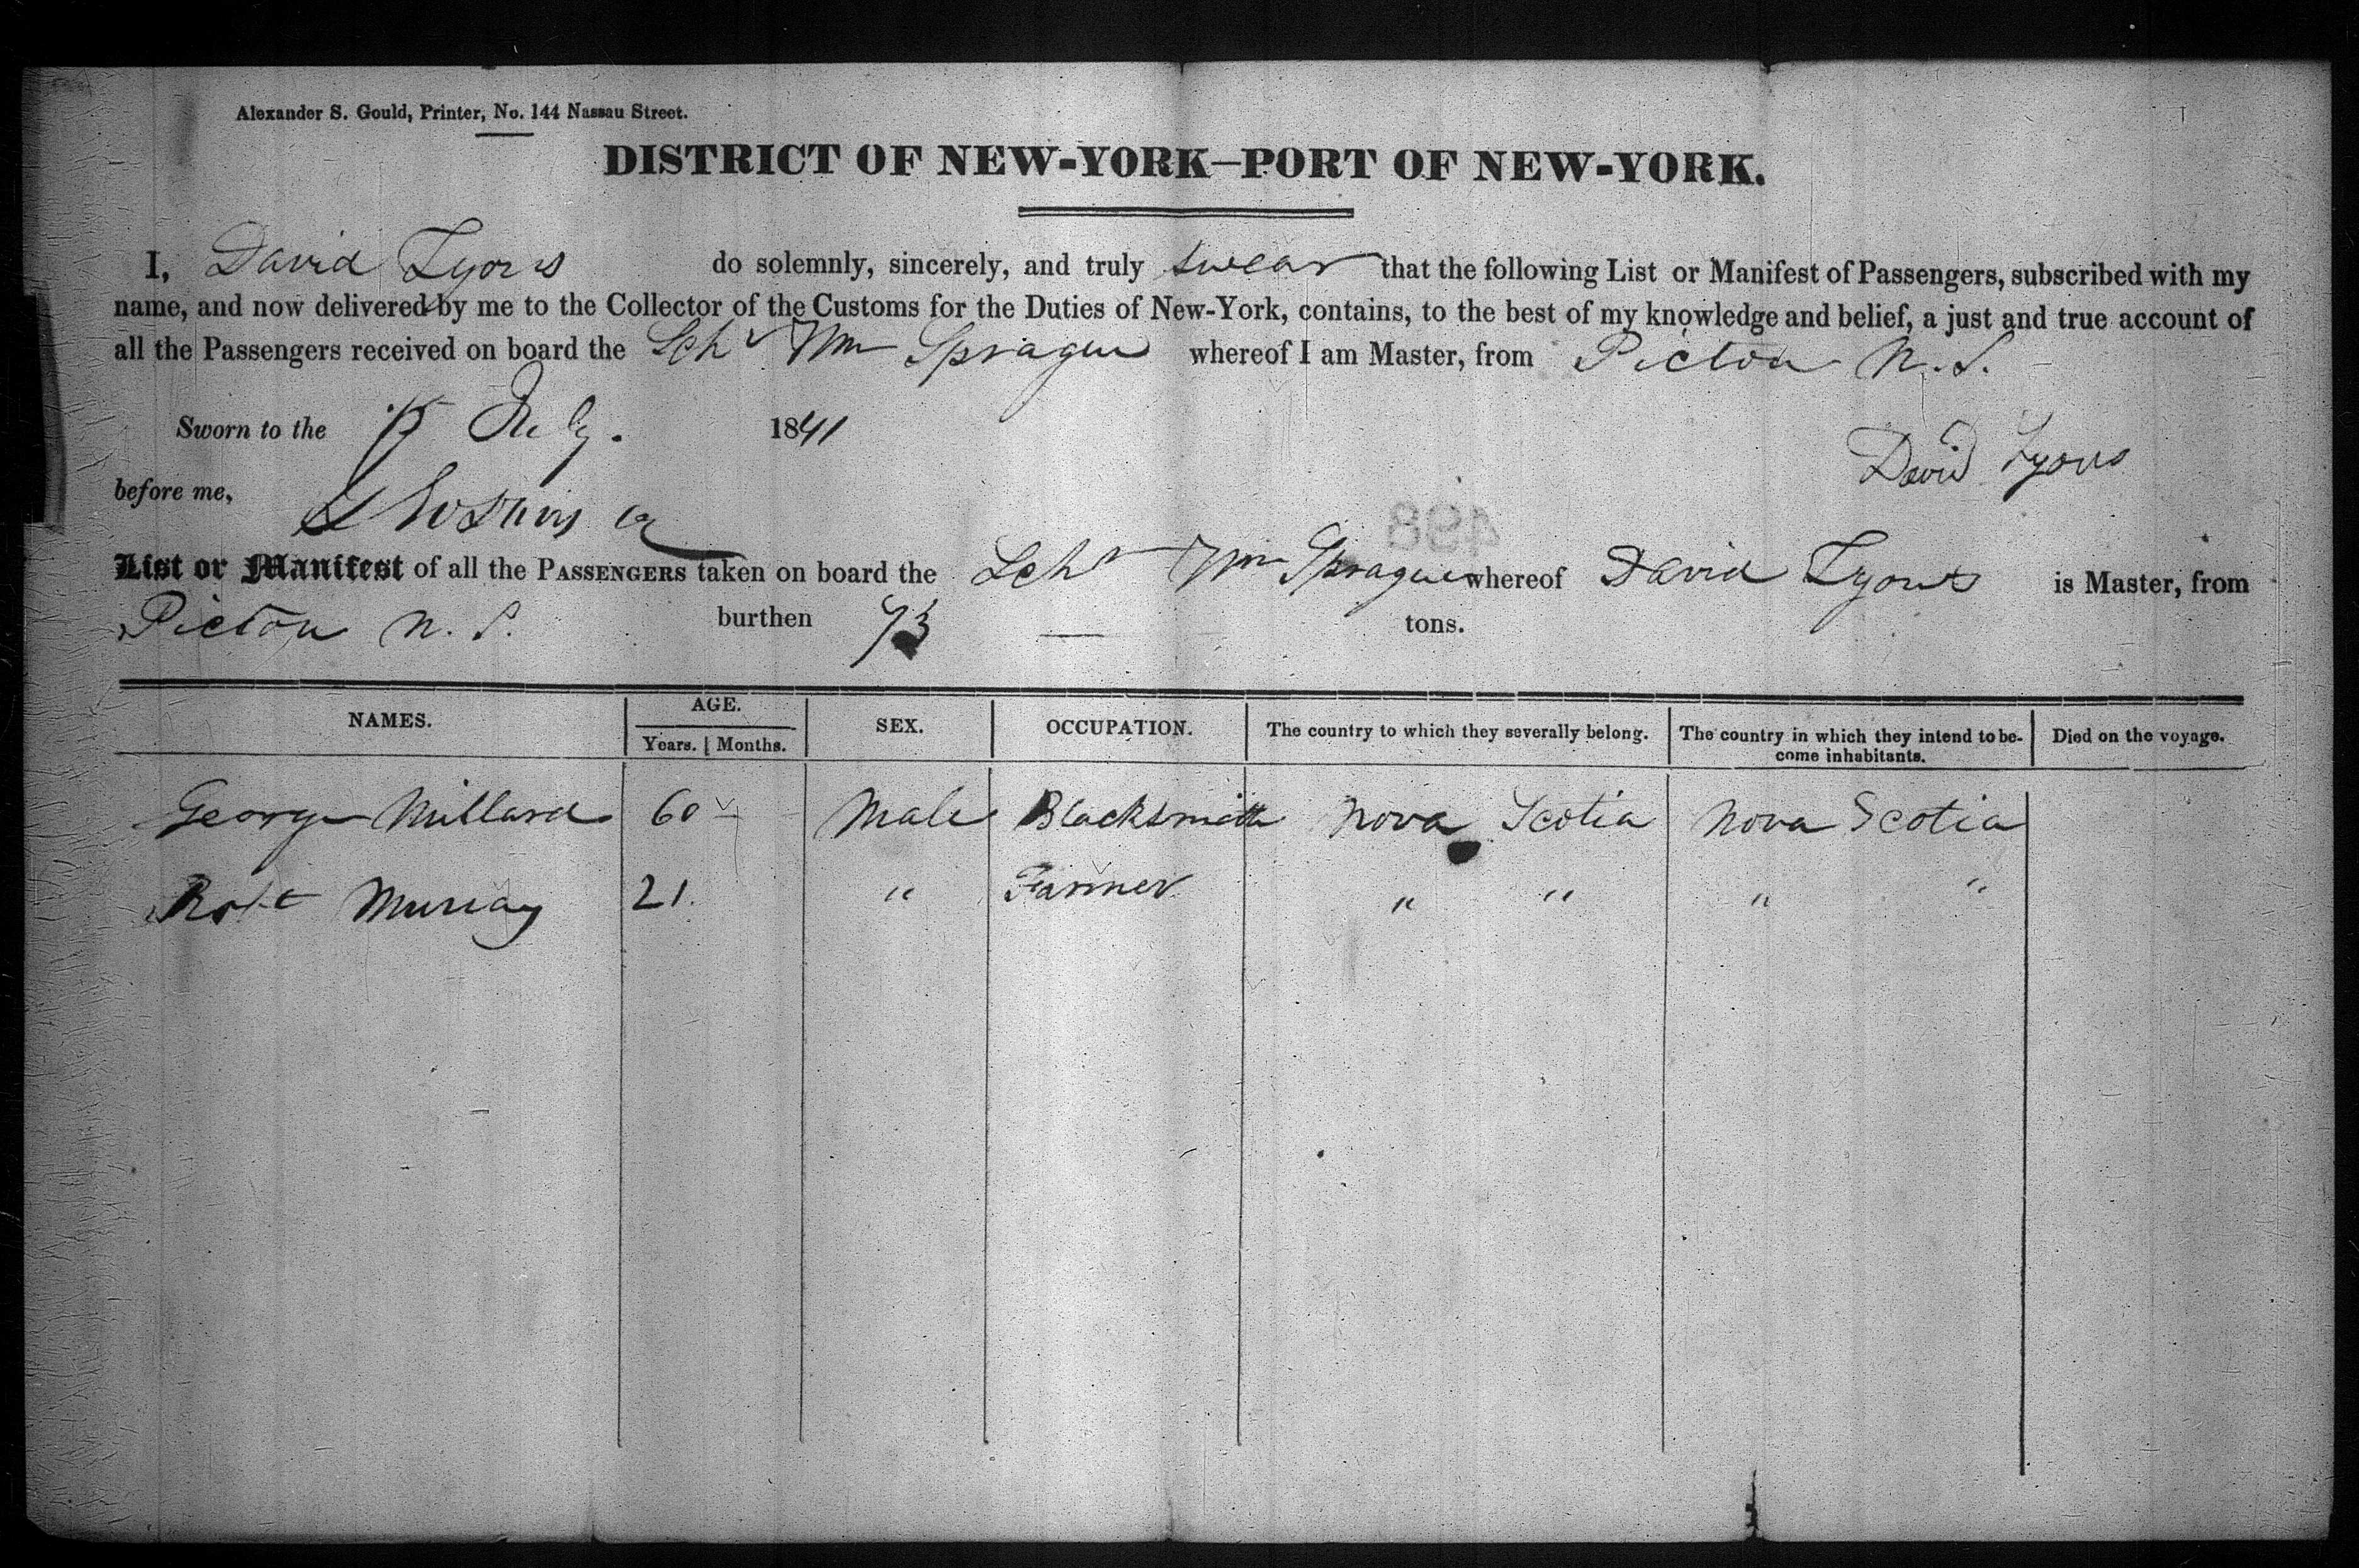 Alexander S. Gould, Printer, No. 144 Nassau Street.
DISTRICT OF NEW-YORK—PORT OF NEW-YORK.
I, David Lyons do solemnly, sincerely, and truly swear that the following List or Manifest of Passengers, subscribed with my
name, and now delivered by me to the Collector of the Customs for the Duties of New-York, contains, to the best of my knowledge and belief, a just and true account of
all the Passengers received on board the Schr Wm Sprague whereof I am Master, from Pictou N.S.
Sworn to the 15 July. 1841
David Lyons
before me,
498
List or Manifest of all the PASSENGERS taken on board the Schr Wm Sprague whereof David Lyons is Master, from
Pictou N.S. burthen 93 — tons.
NAMES. AGE. SEX. OCCUPATION. The country to which they severally belong. The country in which they intend to be- Died on the voyage.
Years. Months. come inhabitants.
George Millard 60 Male Blacksmith Nova Scotia Nova Scotia
Robt Murray 21. " Farmer " " " "